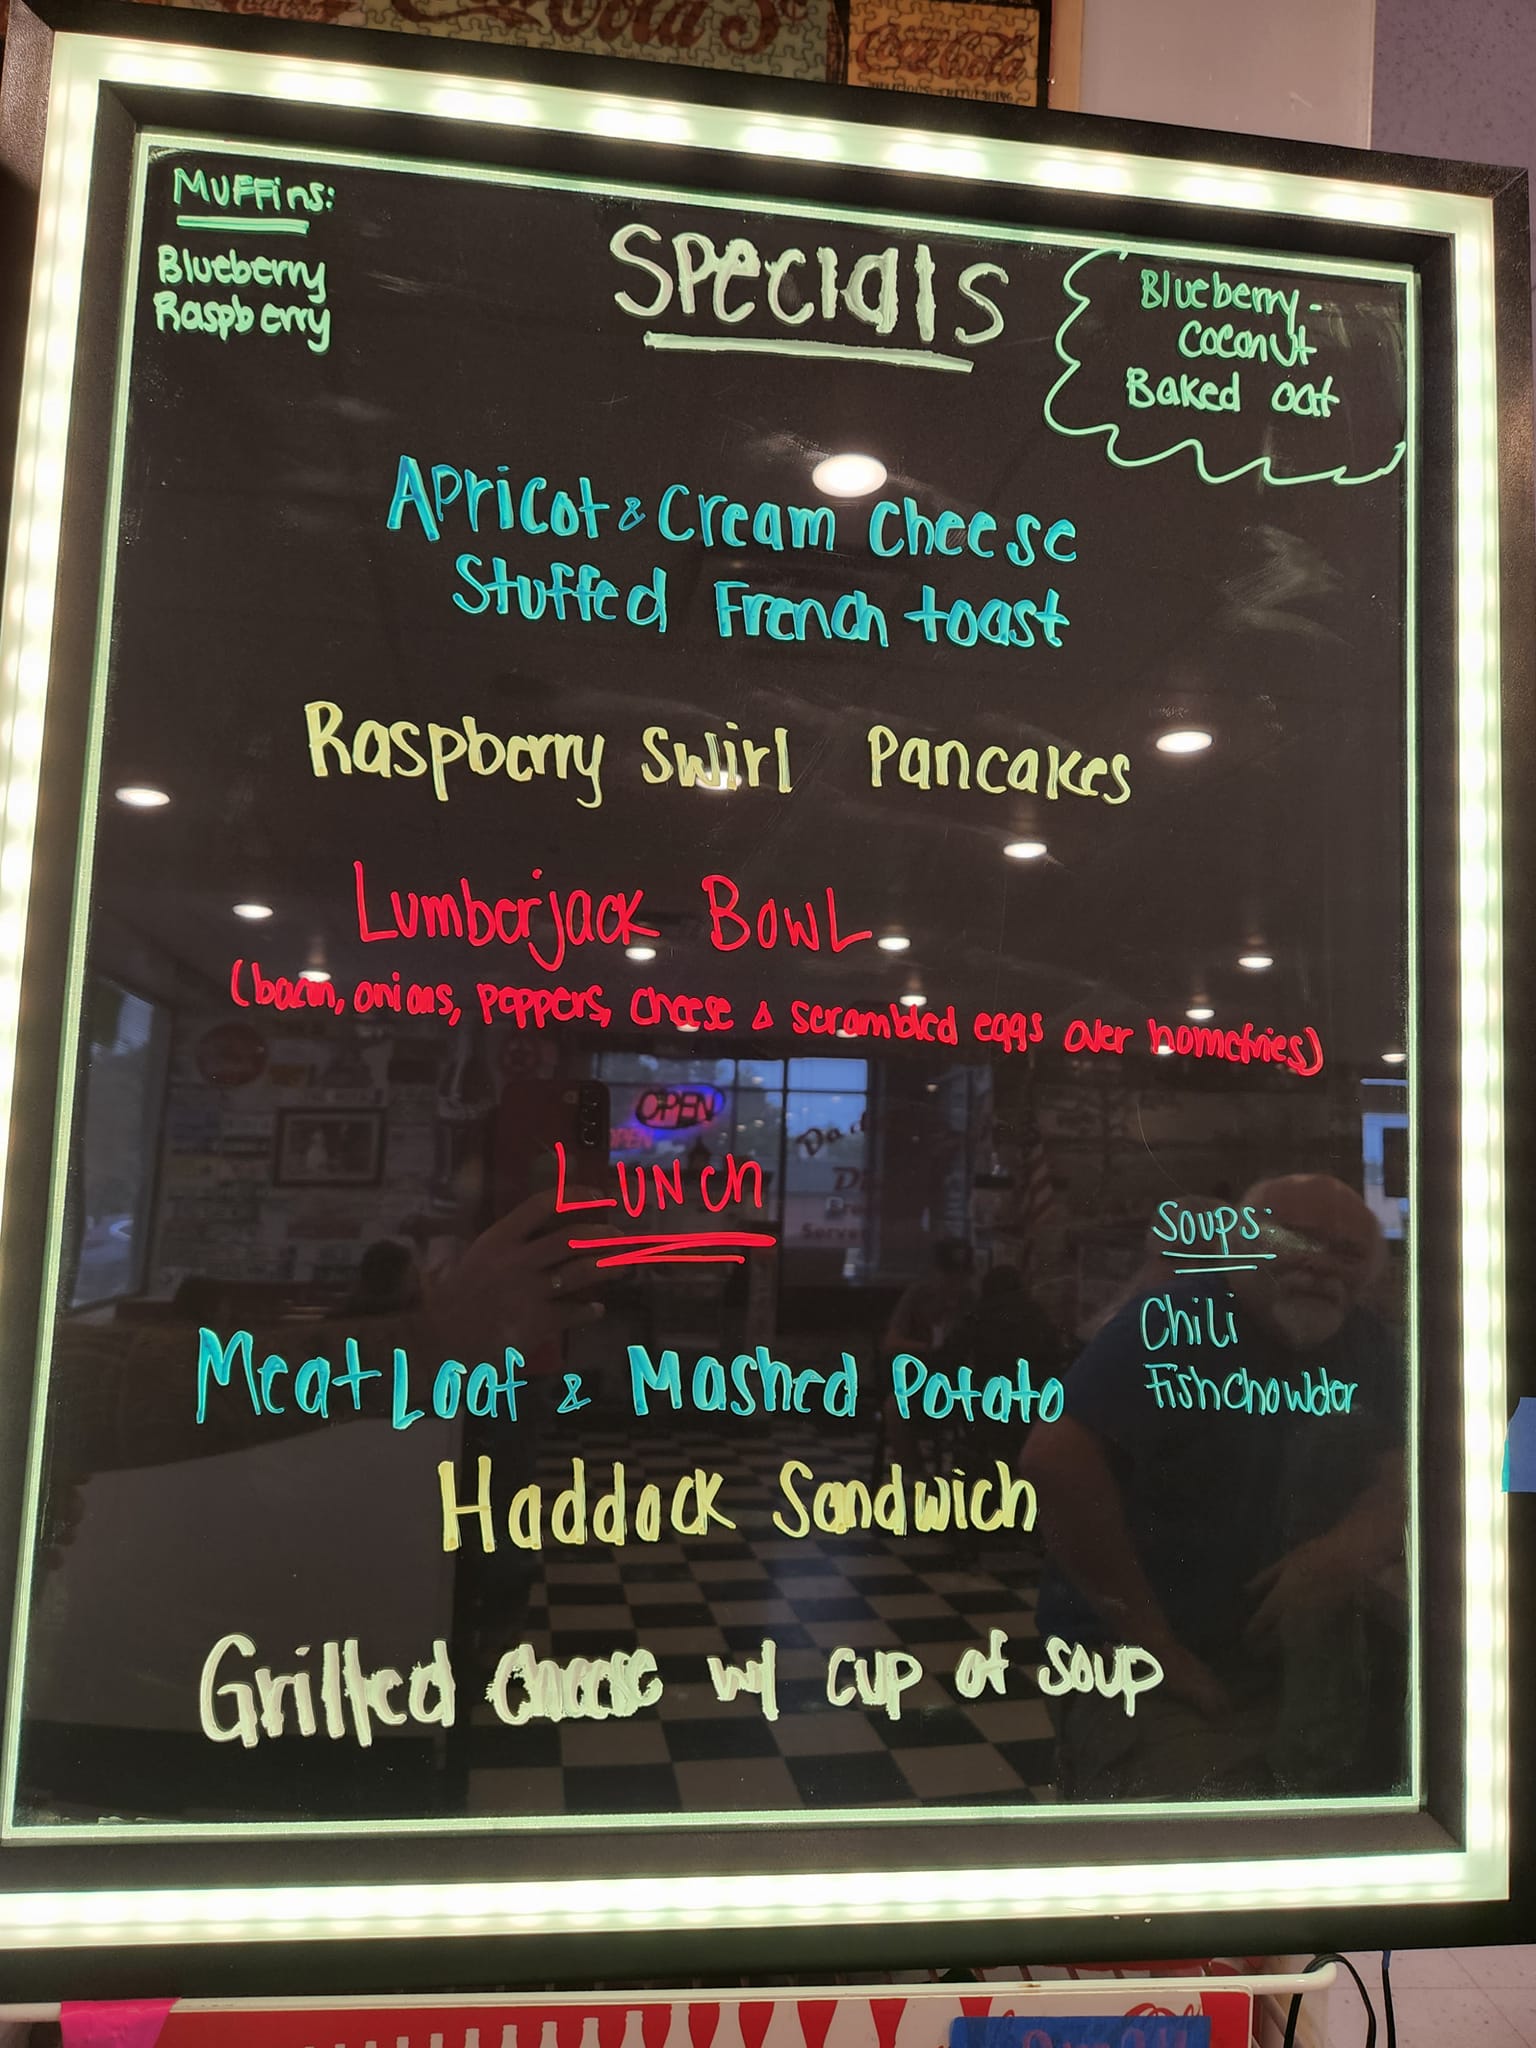 Coca-Cola 5¢
Coca-Cola
Muffins:
Blueberry
Raspberry
Specials
Blueberry -
Coconut
Baked oat
Apricot & Cream Cheese
Stuffed French toast
Raspberry Swirl Pancakes
Lumberjack Bowl
(bacon, onions, peppers, cheese & scrambled eggs over homefries)
OPEN
OPEN
Lunch
Soups:
Chili
Fish Chowder
Meat Loaf & Mashed Potato
Haddock Sandwich
Grilled Cheese w/ cup of soup